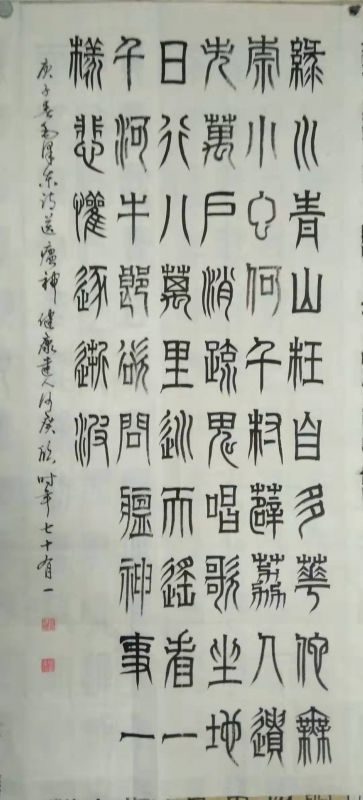 綠水青山枉自多華佗無
柰小虫何千村薜荔人遺
矢萬戶蕭疏鬼唱歌坐地
日行八萬里巡天遙看一
千河牛郎欲問瘟神事一
樣悲懽逐逝波
庚子春毛泽东诗送瘟神 健康達人 时年七十有一